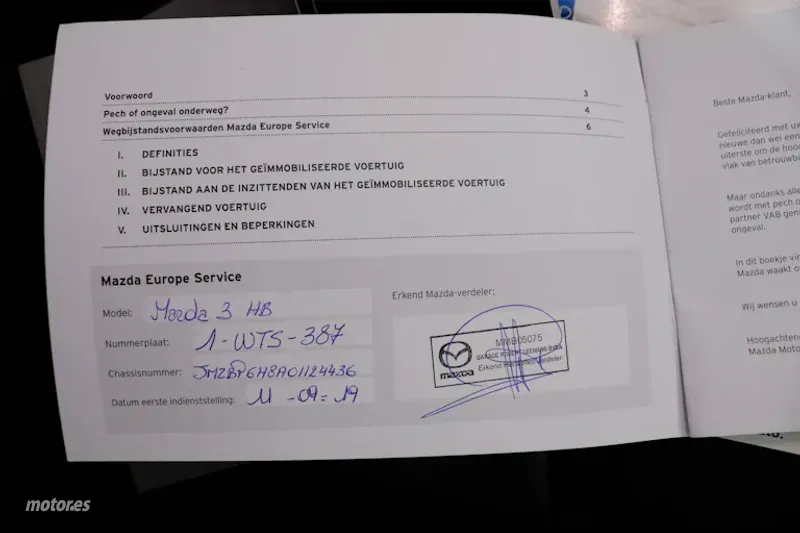 Voorwoord 3
Pech of ongeval onderweg? 4
Wegbijstandsvoorwaarden Mazda Europe Service 6
I. DEFINITIES
II. BIJSTAND VOOR HET GEÏMMOBILISEERDE VOERTUIG
III. BIJSTAND AAN DE INZITTENDEN VAN HET GEÏMMOBILISEERDE VOERTUIG
IV. VERVANGEND VOERTUIG
V. UITSLUITINGEN EN BEPERKINGEN
Mazda Europe Service
Model: Mazda 3 HB
Nummerplaat: 1-WTS-387
Chassisnummer: JMZBP6H8A01124436
Datum eerste indienststelling: 11-09-19
Erkend Mazda-verdeler:
MMB05075
GARAGE
Erkend verdeler
mazda
Beste Mazda-klant,
Gefeliciteerd met uw
nieuwe dan wel een
uiterste om de hoo
vlak van betrouwba
Maar ondanks alle
wordt met pech o
partner VAB gen
ongeval.
In dit boekje vin
Mazda waakt o
Wij wensen u
Hoogachtend
Mazda Motor
motor.es